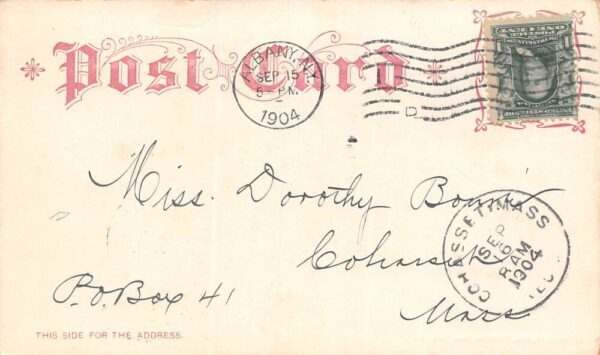 Post Card
ALBANY, N.Y.
SEP 15
5 - PM
1904
D
Miss. Dorothy
Cohasset
P.O. Box 41
Mass
COHASSET, MASS
SEP
16
8 AM
1904
REC'D
THIS SIDE FOR THE ADDRESS